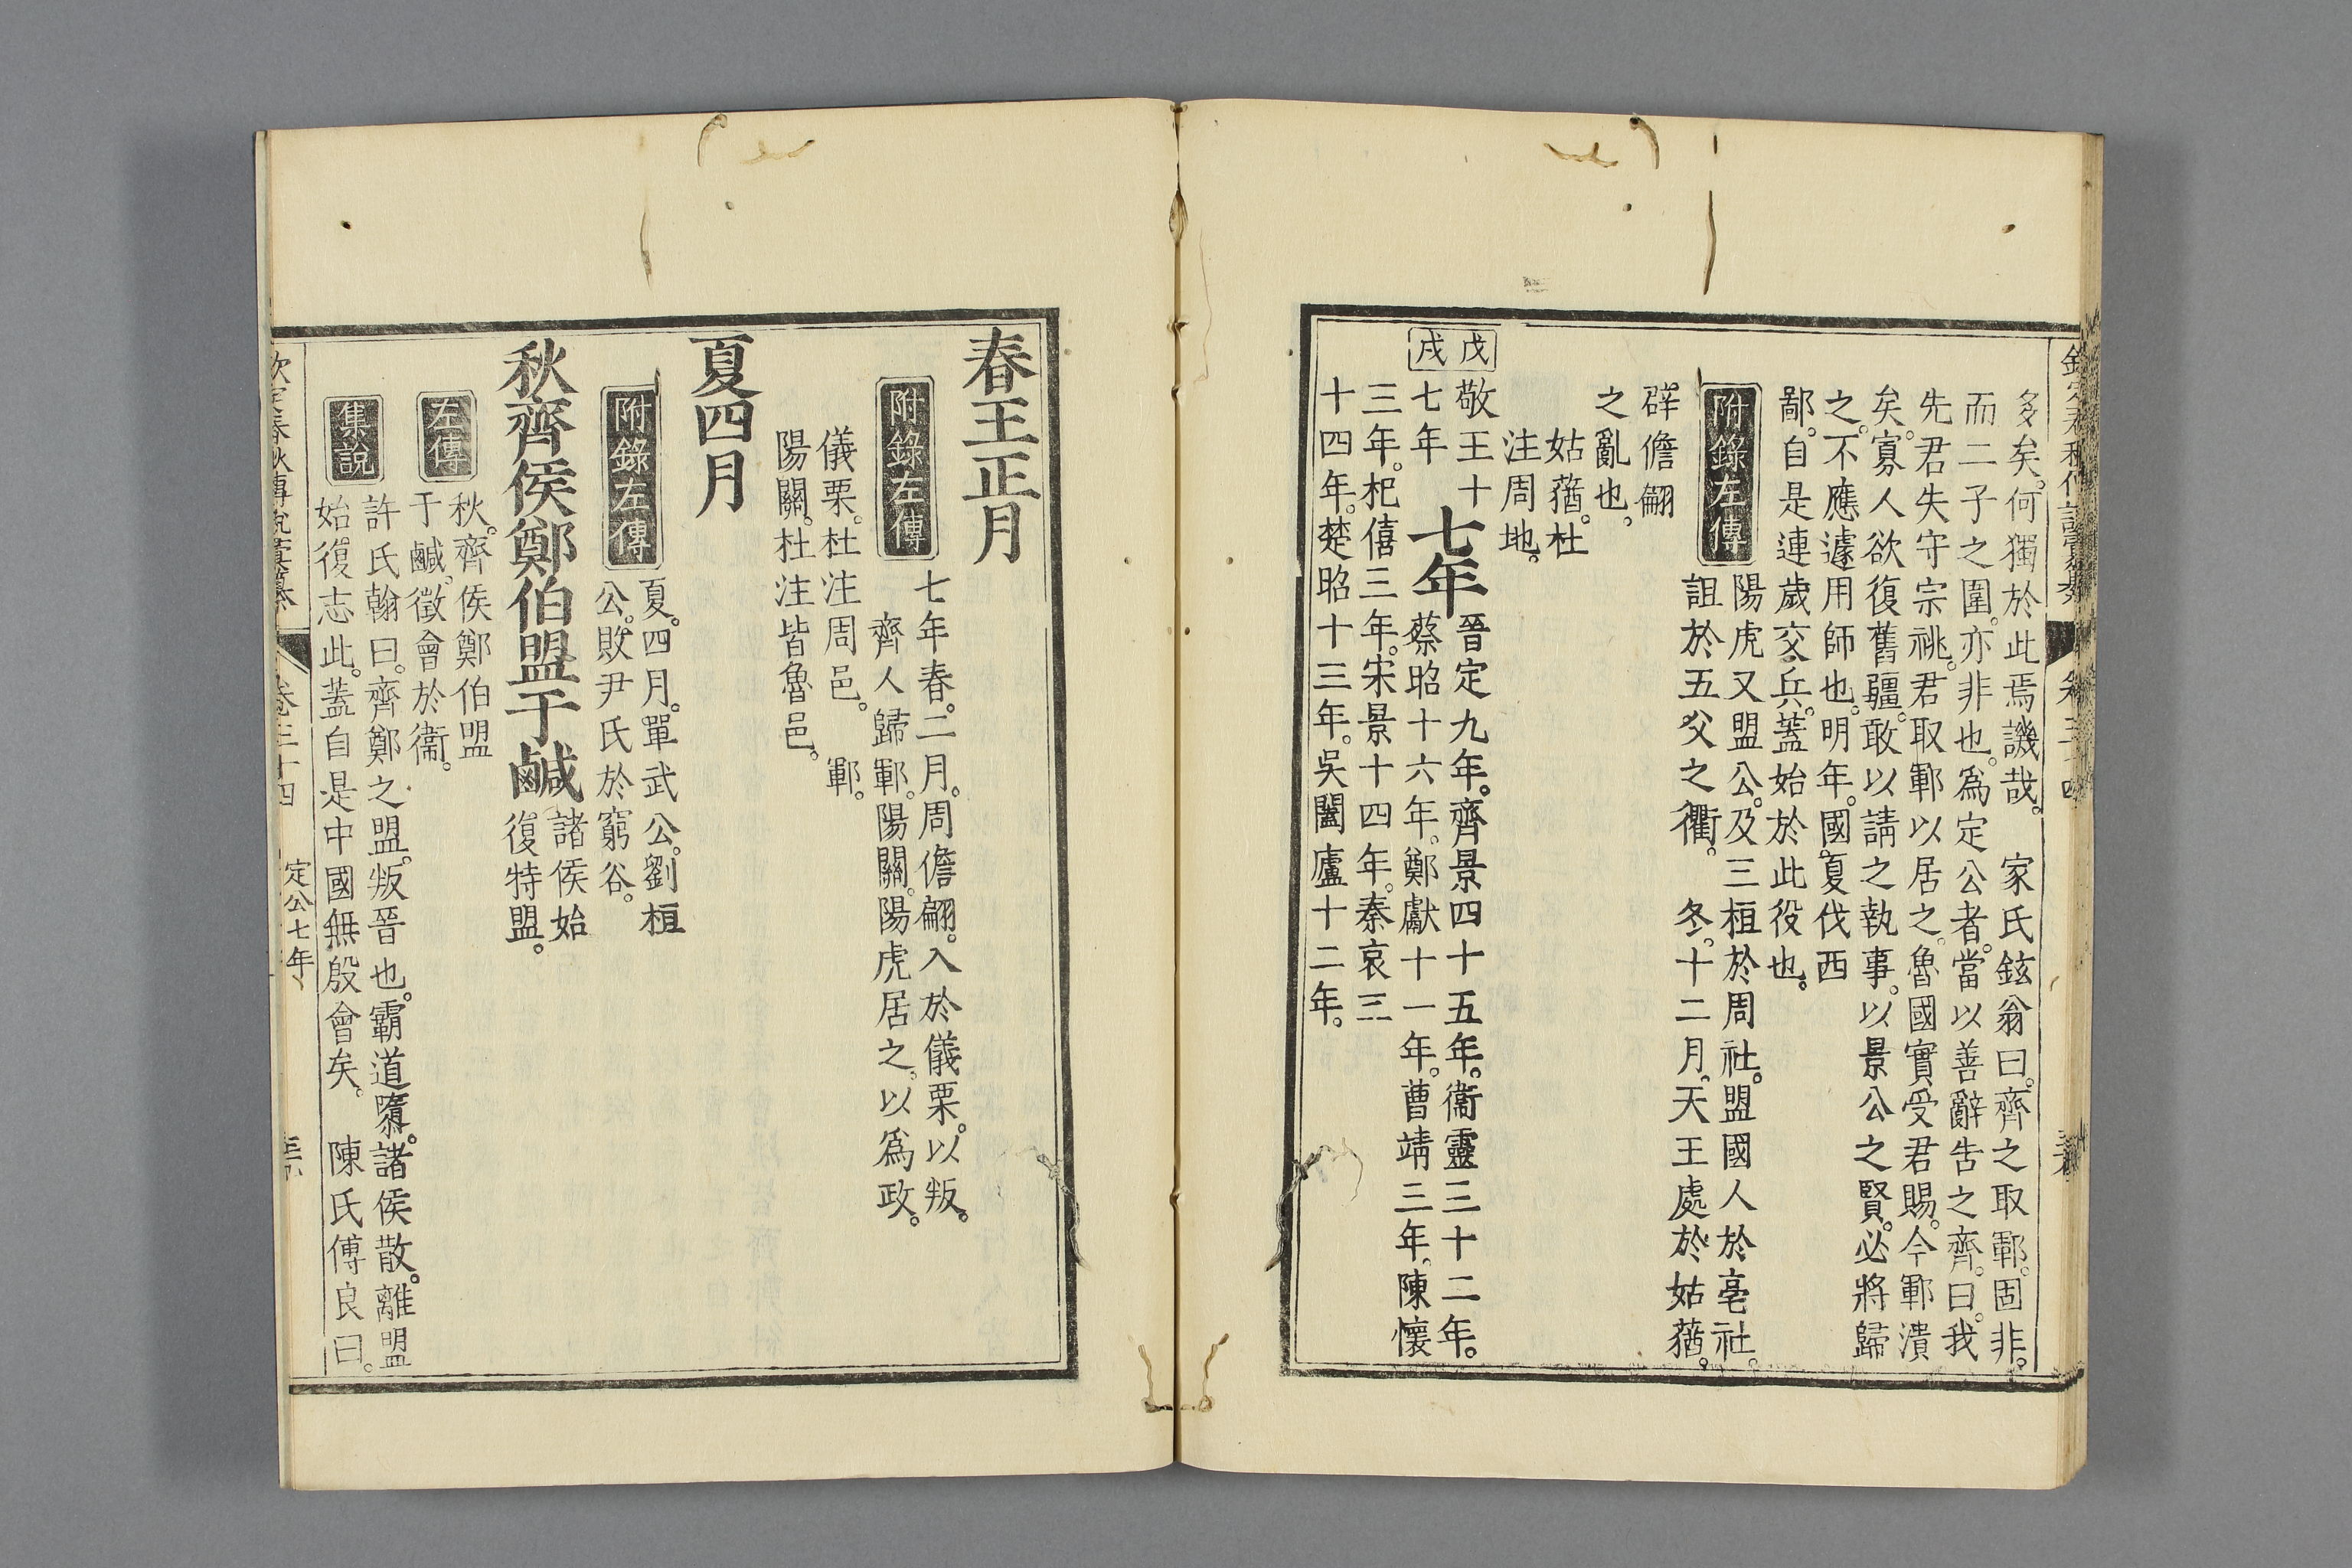 多矣。何獨於此焉譏哉。　家氏鉉翁曰。齊之取鄆。固非。
而二子之圍。亦非也。為定公者。當以善辭告之齊。曰。我
先君失守宗祧。君取鄆以居之。魯國實受君賜。今鄆潰
矣。寡人欲復舊疆。敢以請之執事。以景公之賢。必將歸
之。不應遽用師也。明年。國夏伐西
鄙。自是連歲交兵。蓋始於此役也。
附錄左傳
陽虎又盟公。及三桓於周社。盟國人於亳社。
詛於五父之衢。　冬。十二月。天王處於姑蕕。
辟儋翩
之亂也。
姑蕕。杜
注周地。
戊戌
敬王十
七年
七年
晉定九年。齊景四十五年。衞靈三十二年。
蔡昭十六年。鄭獻十一年。曹靖三年。陳懷
三年。杞僖三年。宋景十四年。秦哀三
十四年。楚昭十三年。吳闔廬十二年。
春王正月
附錄左傳
七年春。二月。周儋翩。入於儀栗。以叛。
齊人歸鄆。陽關。陽虎居之。以爲政。
儀栗。杜注周邑。　鄆。
陽關。杜注皆魯邑。
夏四月
附錄左傳
夏。四月。單武公。劉桓
公。敗尹氏於窮谷。
秋齊侯鄭伯盟于鹹
諸侯始
復特盟。
左傳
秋。齊侯鄭伯盟
于鹹。徵會於衞。
集說
許氏翰曰。齊鄭之盟。叛晉也。霸道隳。諸侯散。離盟
始。復志此。蓋自是中國無殷會矣。　陳氏傅良曰。
欽定春秋傳說彙纂
卷三十四
定公七年